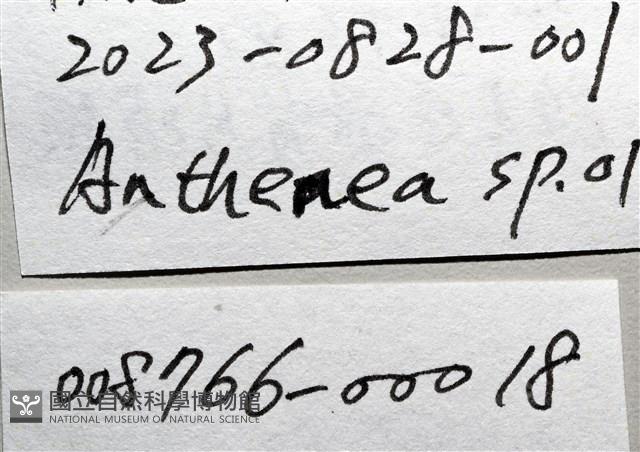 2023-0828-001
Anthenea sp.01
008766-00018
國立自然科學博物館
NATIONAL MUSEUM OF NATURAL SCIENCE